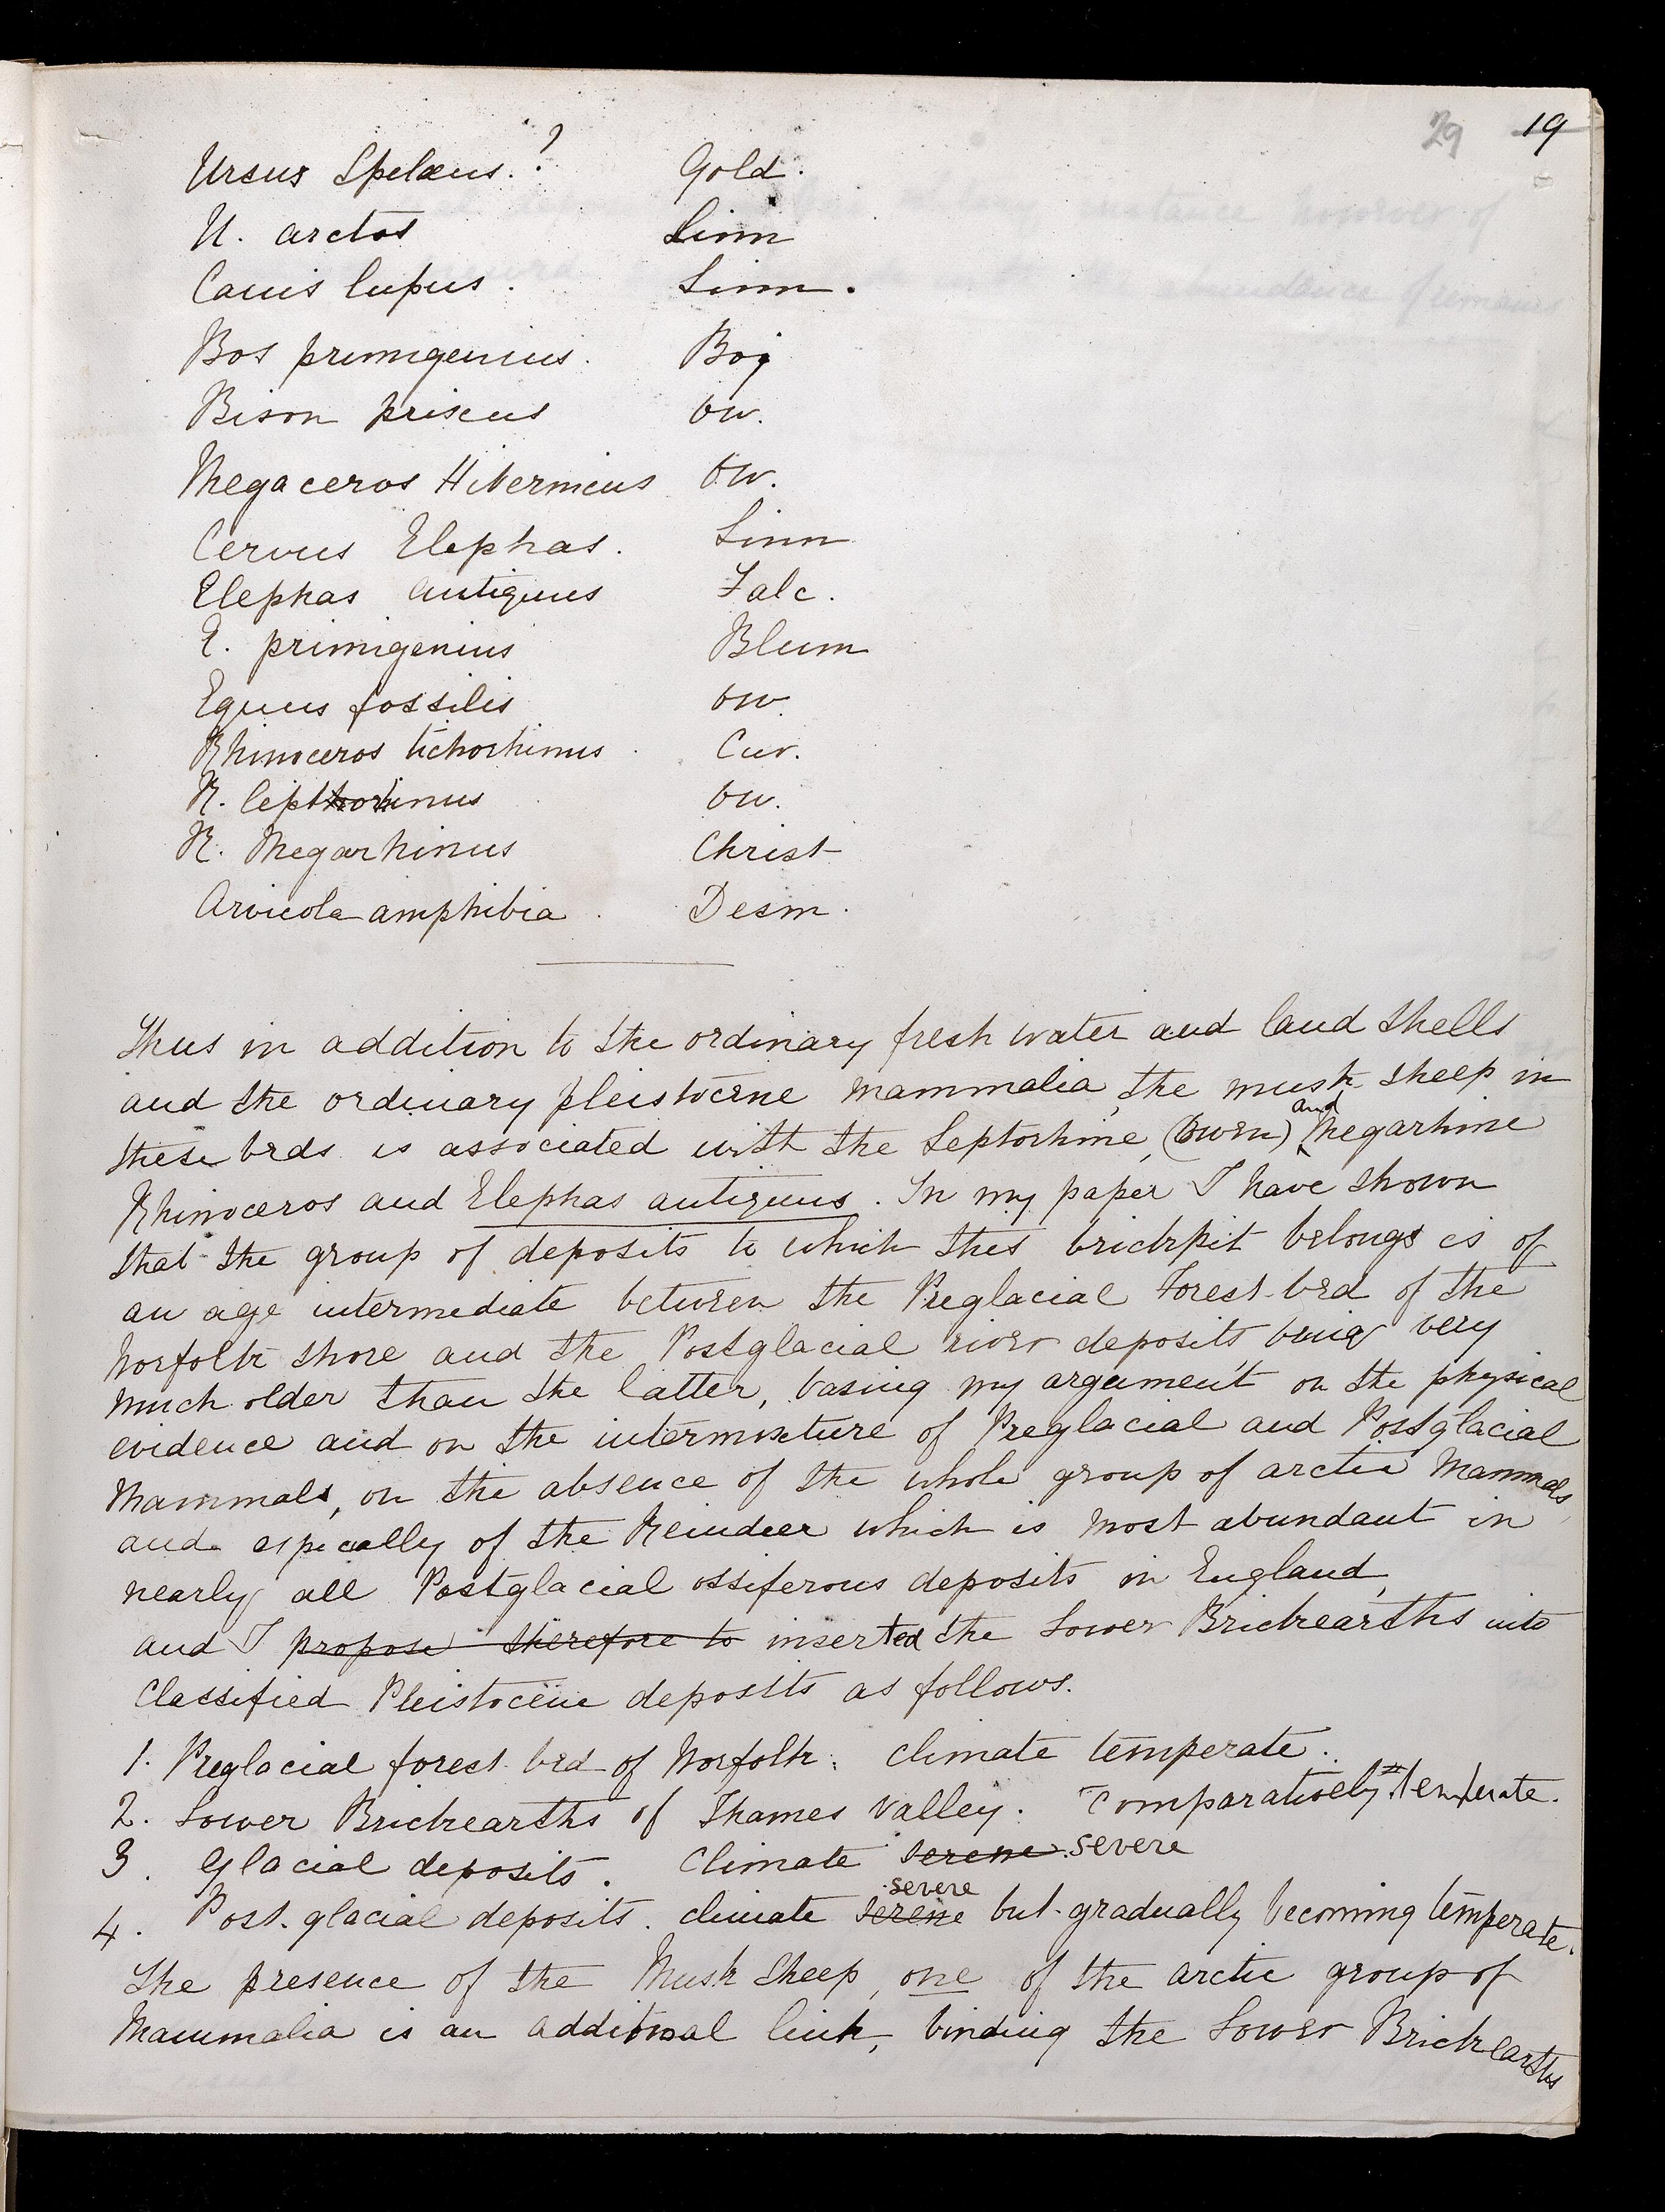 29 19
Ursus Spelæus.? Gold.
U. arctos Linn
Canis lupus. Linn.
Bos primigenius. Boj
Bison priscus Ow.
Megaceros Hibernicus Ow.
Cervus Elephas. Linn
Elephas antiquus Falc.
E. primigenius Blum
Equus fossilis Ow.
Rhinoceros tichorhinus. Cuv.
R. leptorhinus Ow.
R. Megarhinus Christ
Arvicola amphibia. Desm.
Thus in addition to the ordinary fresh water and land shells
and the ordinary pleistocene mammalia, the musk sheep in
these beds is associated with the Leptorhine, (Owen) and Megarhine
Rhinoceros and Elephas antiquus. In my paper I have shown
that the group of deposits to which this brickpit belongs is of
an age intermediate between the Preglacial Forest-bed of the
Norfolk shore and the Postglacial river deposits being very
much older than the latter, basing my argument on the physical
evidence and on the intermixture of Preglacial and Postglacial
Mammals, on the absence of the whole group of arctic Mammals,
and espically of the Reindeer which is most abundant in
nearly all Postglacial ossiferous deposits in England,
and I propose therefore to inserted the Lower Brickearths into
Classified Pleistocene deposits as follows.
1. Preglacial forest-bed of Norfolk: climate temperate.
2. Lower Brickearths of Thames Valley. Comparatively temperate.
3. Glacial deposits. Climate serene severe
severe
4. Post-glacial deposits. climate serene but gradually becoming temperate.
The presence of the Musk Sheep, one of the arctic group of
Mammalia is an additional link, binding the Lower Brickearths